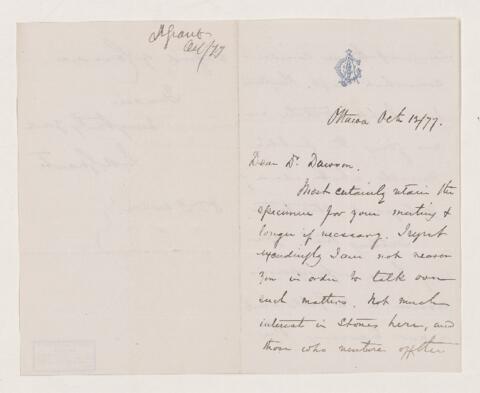 Grant
Oct/77
Ottawa Oct 12/77.
Dear Dr. Dawson.
Most certainly retain the
specimen for your meeting &
longer if necessary. I regret
exceedingly I am not nearer
you in order to talk over
such matters. Not much
interest in Stones here, and
those who venture off the